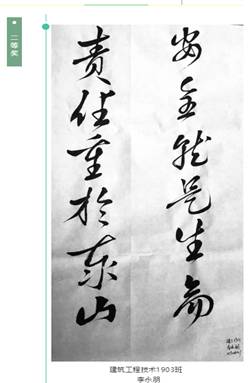 二等奖
安全就是生命
责任重於泰山
建筑工程技术1903班
李小朋